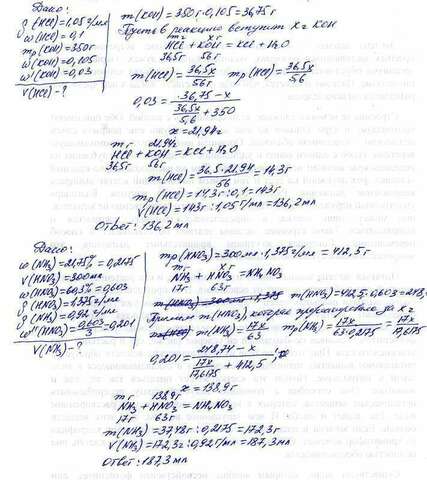 Дано:
ρ(HCl)=1,05г/мл
ω(HCl)=0,1
mр(KOH)=350г
ω(KOH)=0,105
ω'(KOH)=0,03
V(HCl)-?
m(KOH)=350г·0,105=36,75г
Пусть в реакцию вступит xг KOH
mг xг
HCl + KOH = KCl + H₂O
36,5г 56г
m(HCl)=36,5x/56г mр(HCl)=36,5x/5,6г
0,03= (36,75-x)/(36,5x/5,6+350)
x=21,94г
mг 21,94г
HCl + KOH = KCl + H₂O
36,5г 56г
m(HCl)=36,5·21,94/56=14,3г
mр(HCl)=14,3г:0,1=143г
V(HCl)=143г:1,05г/мл=136,2мл
Ответ: 136,2мл
Дано:
ω(NH₃)=21,75%=0,2175
V(HNO₃)=300мл
ω(HNO₃)=60,3%=0,603
ρ(HNO₃)=1,375г/мл
ρ(NH₃)=0,92г/мл
ω''(HNO₃)=0,603/3=0,201
V(NH₃)-?
mр(HNO₃)=300мл·1,375г/мл=412,5г
mг xг
NH₃ + HNO₃ = NH₄NO₃
17г 63г
m(HNO₃)=300мл·1,375 m(HNO₃)=412,5·0,603=248,
Примем m(HNO₃), которая прореагировала за xг
m(HCl) m(NH₃)=17x/63 mр(NH₃)=17x/63·0,2175=17x/17,6175
0,201= (248,74-x)/(17x/17,6175+412,5)
x=138,9г
mг 138,9г
NH₃ + HNO₃ = NH₄NO₃
17г 63г
m(NH₃)=37,48г:0,2175=172,3г
V(NH₃)=172,3г:0,92г/мл=187,3мл
Ответ: 187,3мл